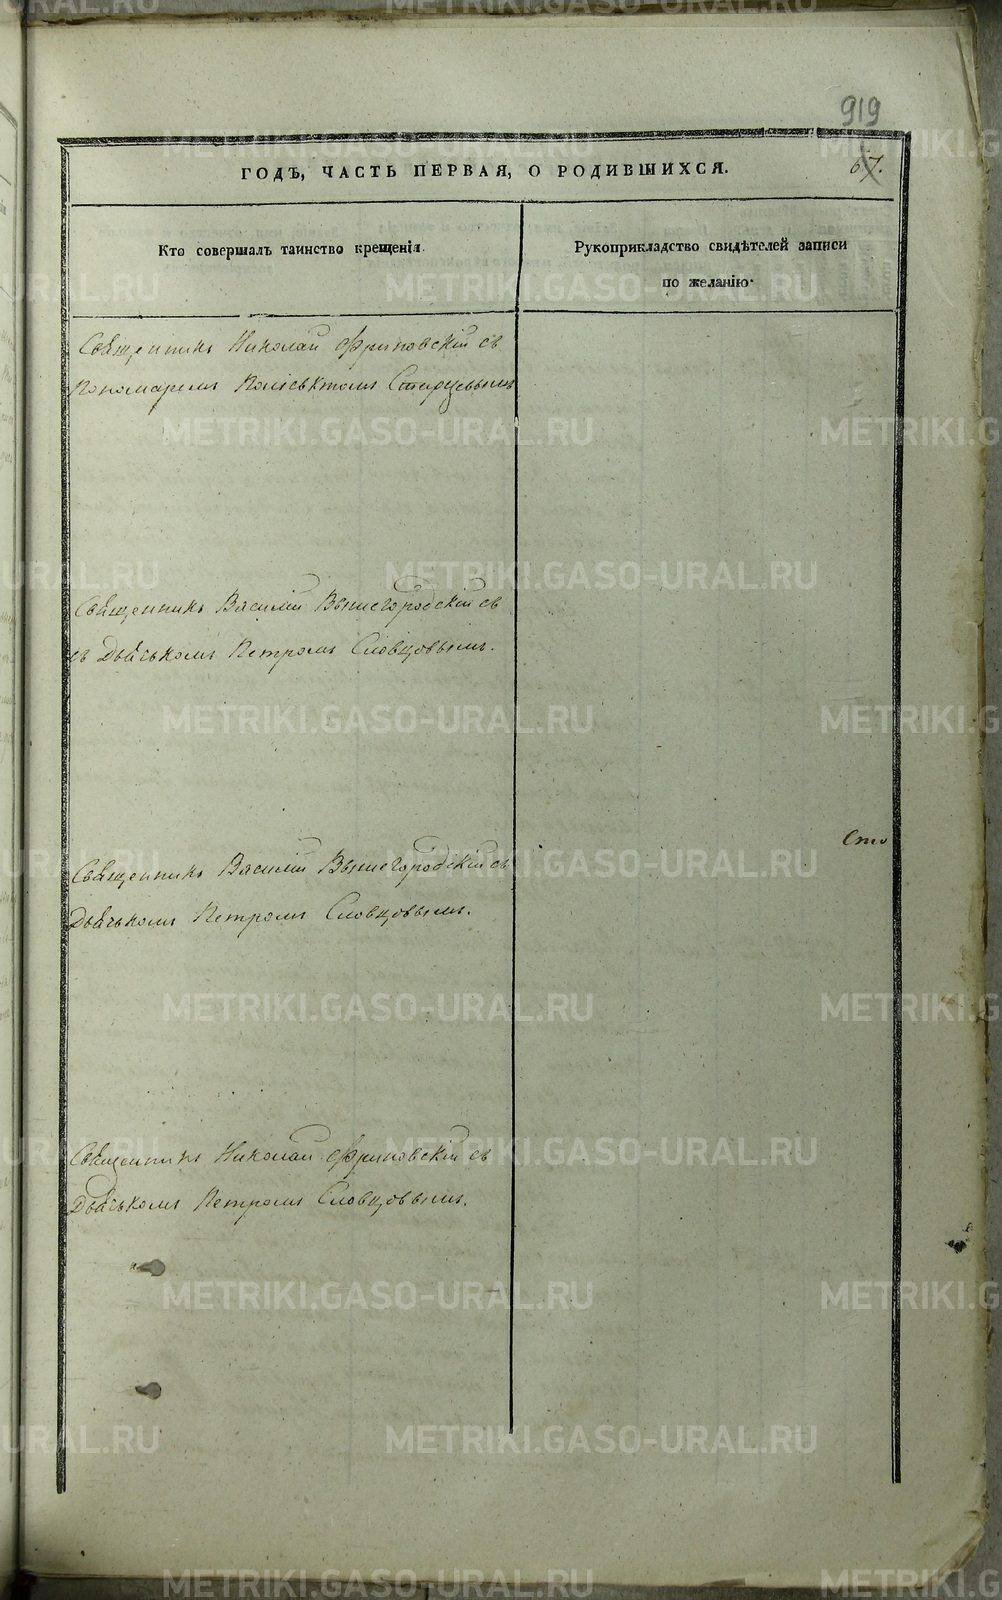 919
ГОДЪ, ЧАСТЬ ПЕРВАЯ, О РОДИВШИХСЯ.
67.
Кто совершалъ таинство крещенія
Рукоприкладство свидѣтелей записи
по желанію·
Священникъ Николай Фриновскій съ
Пономаремъ Поліевктомъ Старцевымъ
Священникъ Василій Вышегородскій съ
съ Дьячькомъ Петромъ Словцовымъ.
Сто
Священникъ Василій Вышегородскій съ
Дьячькомъ Петромъ Словцовымъ.
Священникъ Николай Фриновскій съ
Дьячькомъ Петромъ Словцовымъ.
METRIKI.GASO-URAL.RU